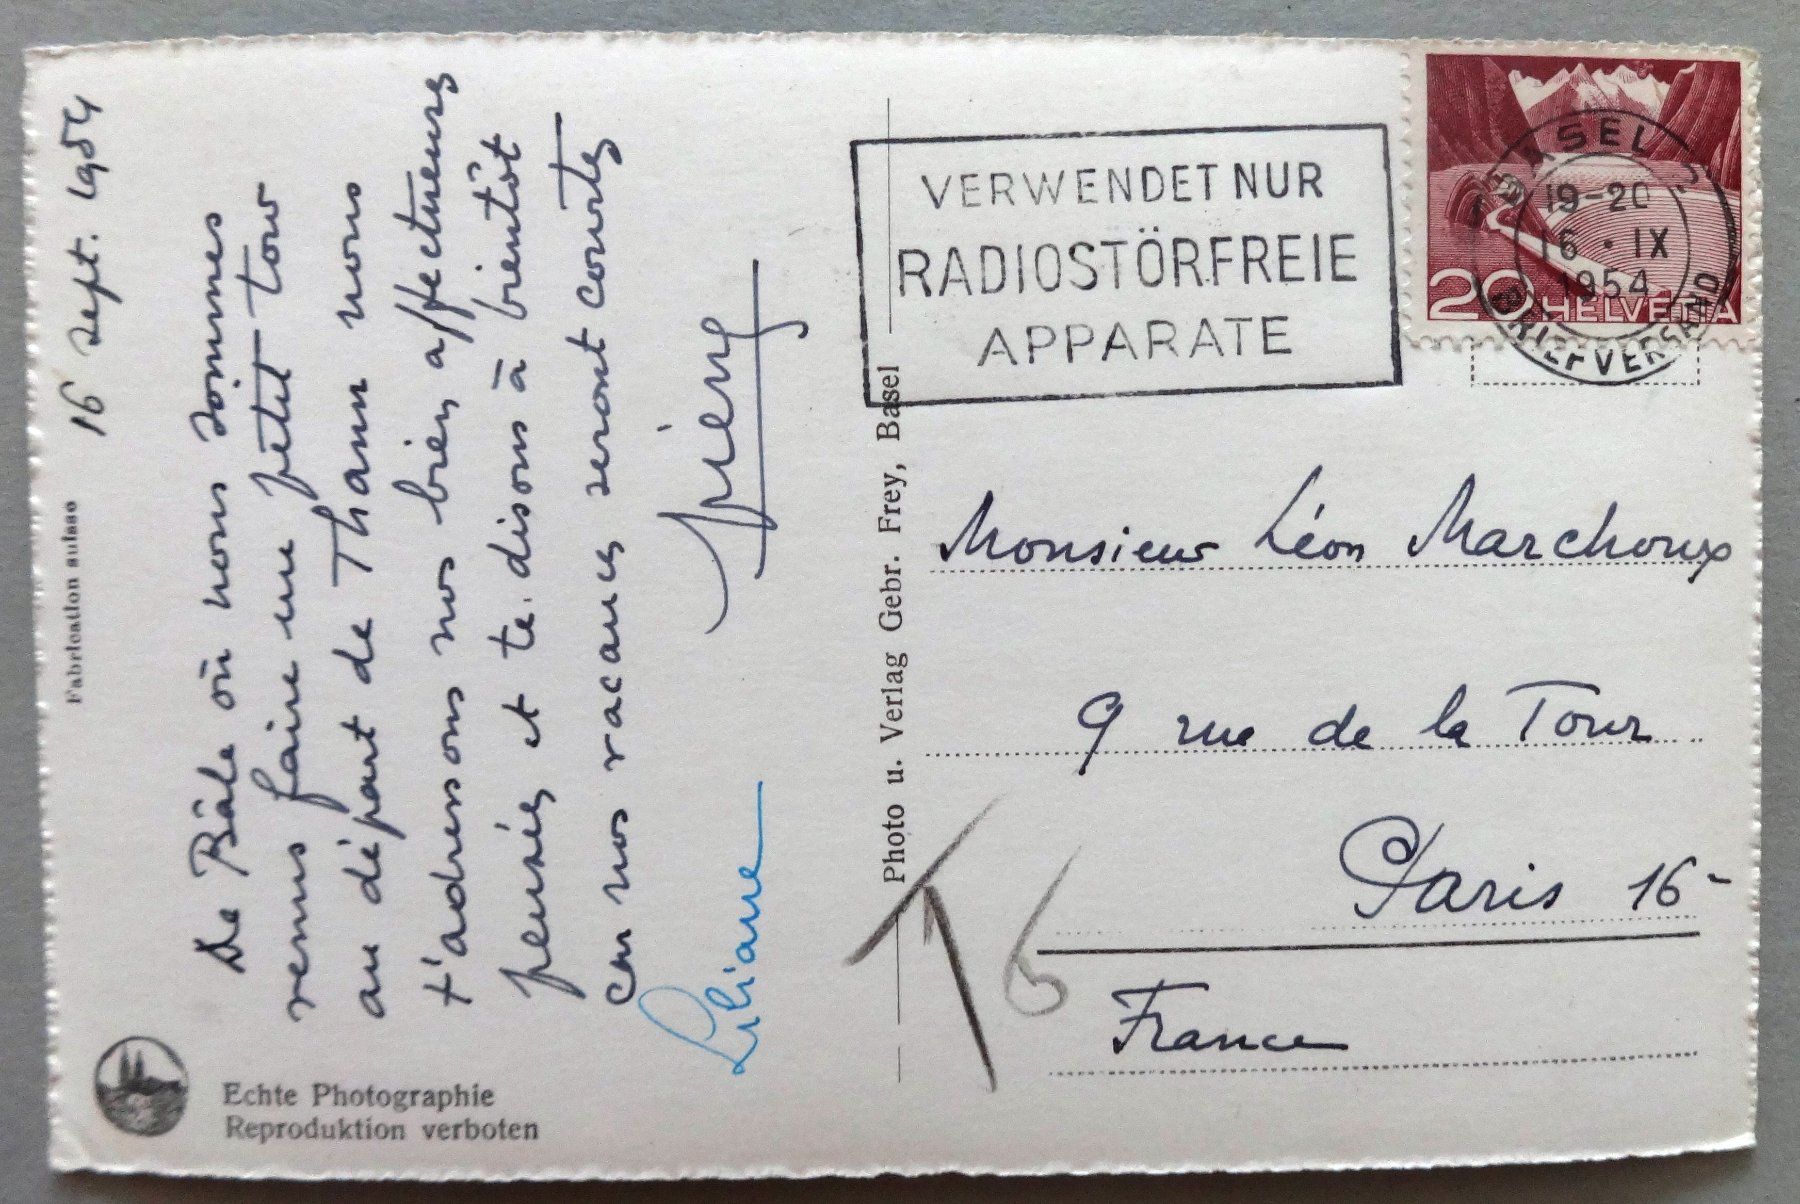 16 sept. 1954
De Bâle où nous sommes
venus faire une petit tour
au départ de Thann nous
t'adressons nos bien affectueuses
pensées et te disons à bientôt
Car nos vacances seront courtes
Pierre
Liliane
Fabrication suisse
Echte Photographie
Reproduktion verboten
Photo u. Verlag Gebr. Frey, Basel
VERWENDET NUR
RADIOSTÖRFREIE
APPARATE
BASEL 2
19-20
16 · IX
1954
BRIEFVERSAND
20 HELVETIA
Monsieur Léon Marchoux
9 rue de la Tour
Paris 16-
France
T 6